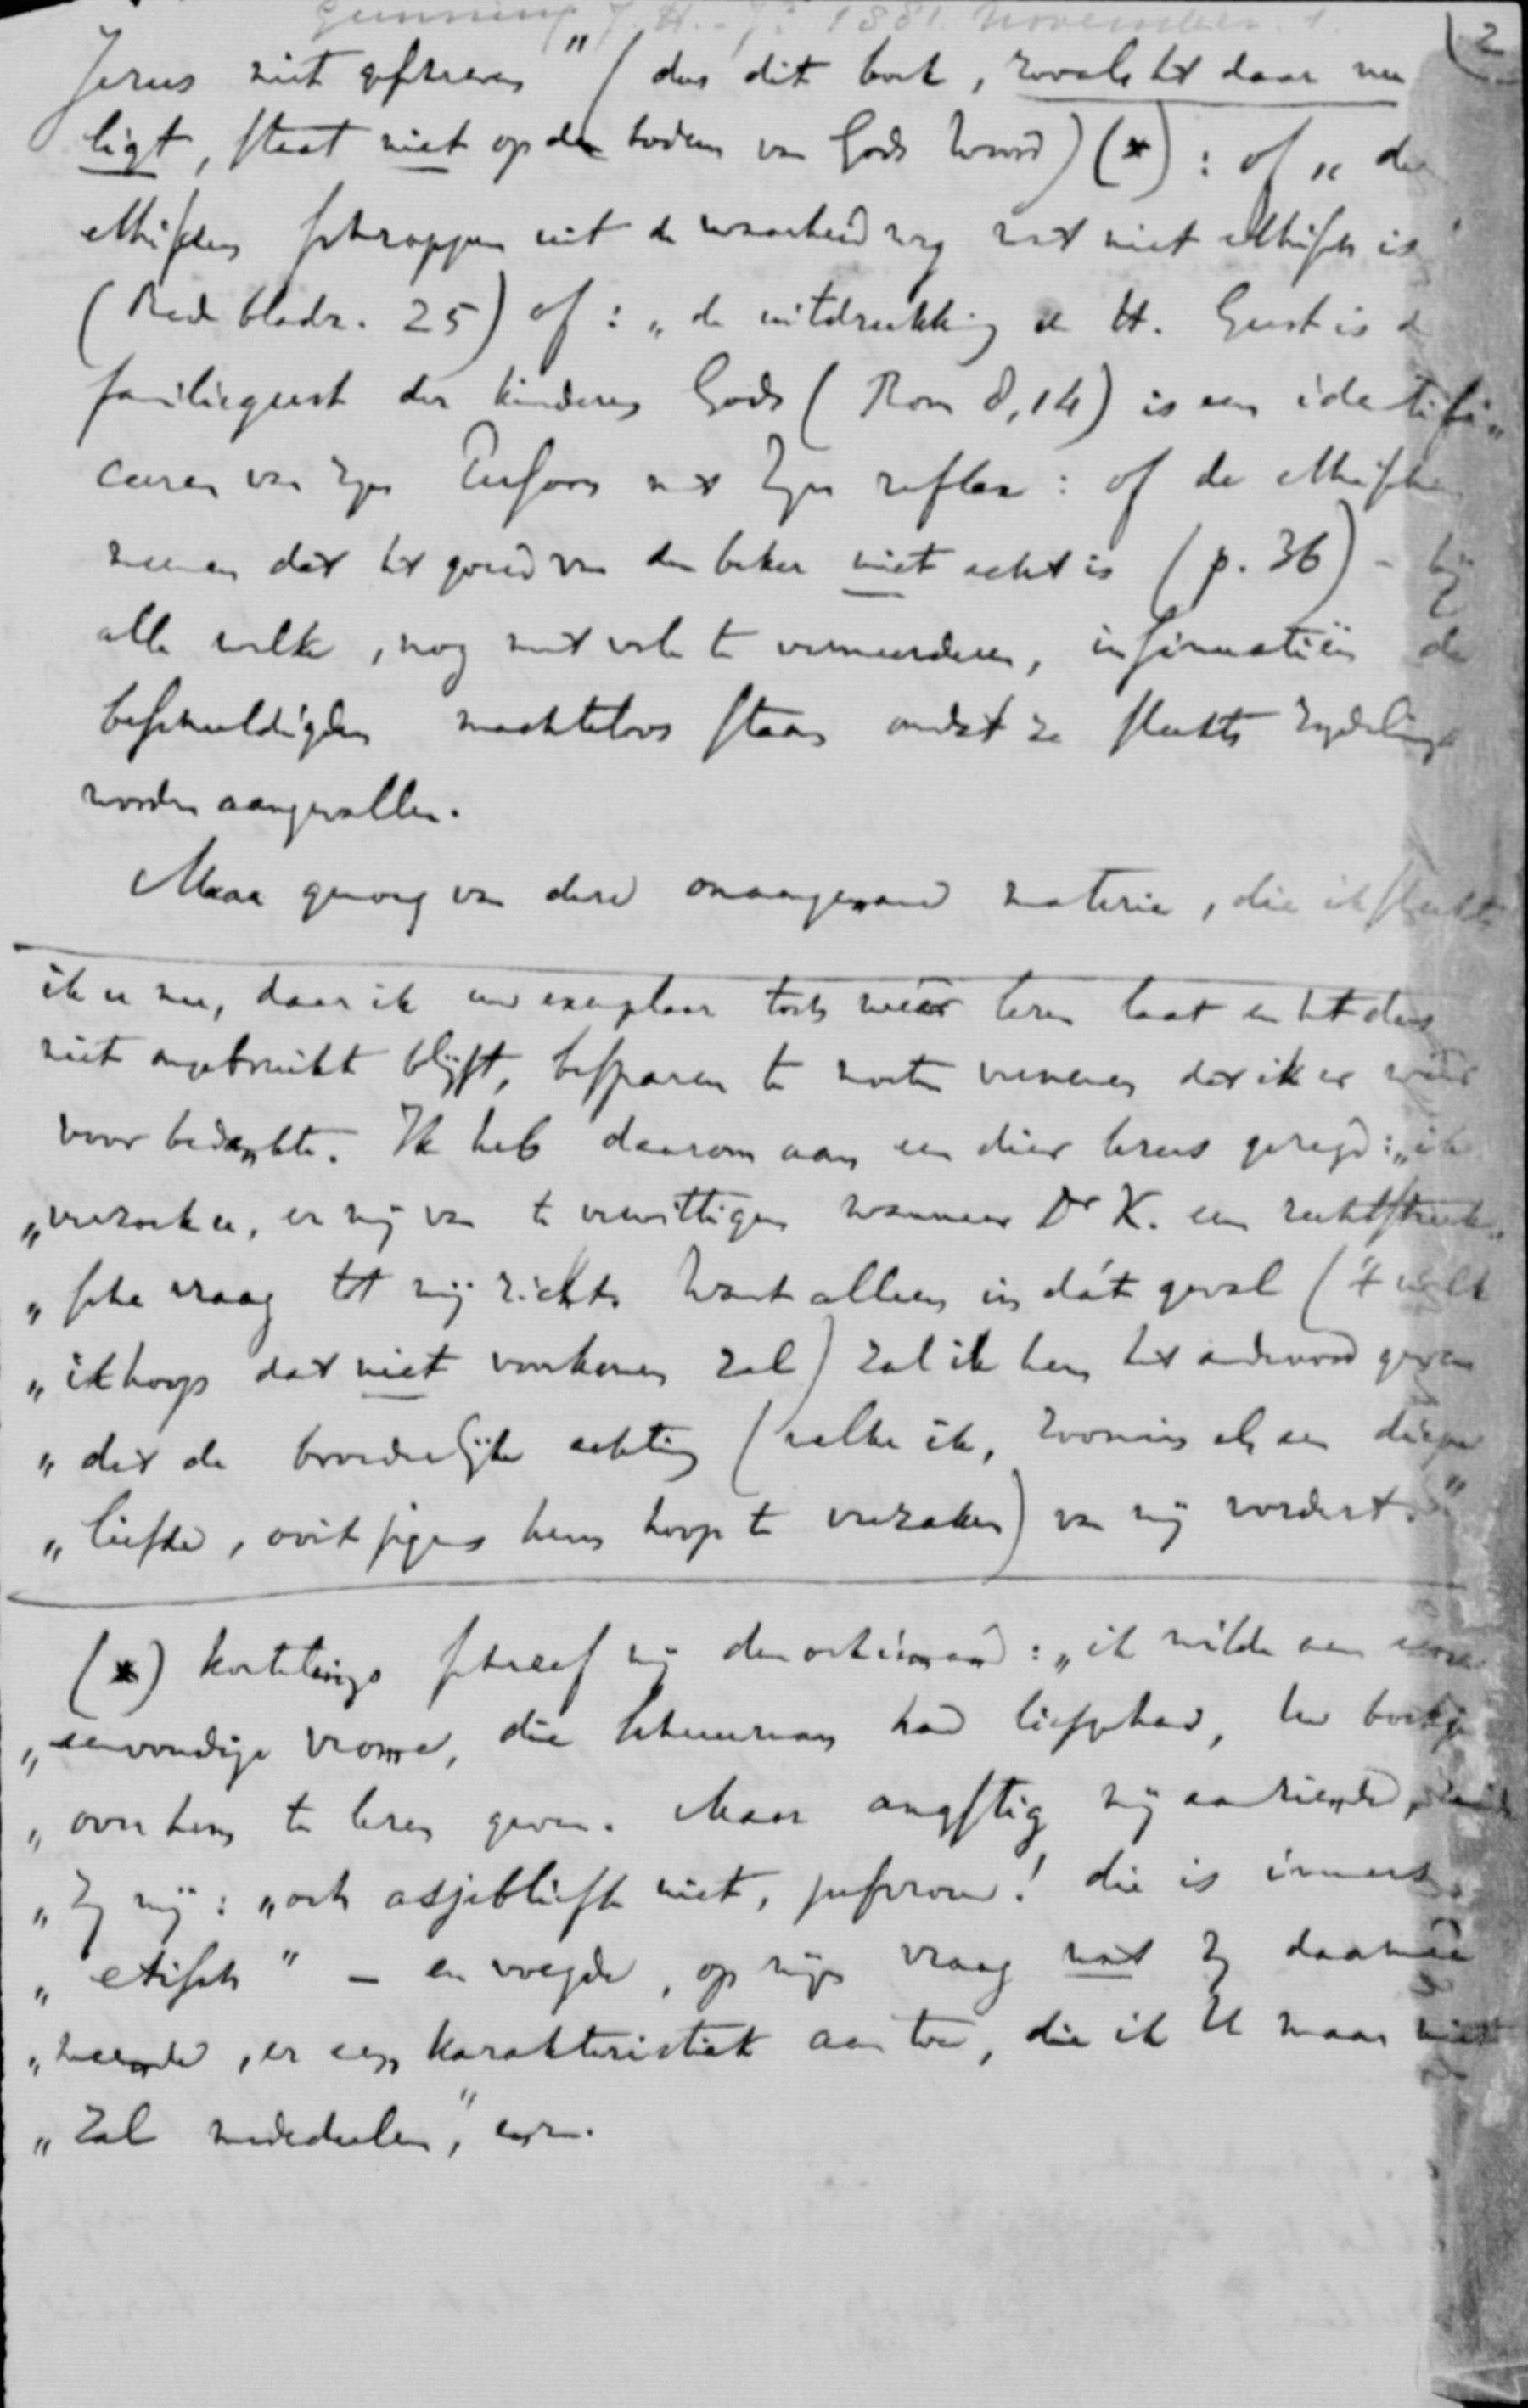 Gunning, J. H. - Jr. 1881. November. 1.
2
Jezus niet geschreven" (dus dit boek, zooals het daar nu
ligt, staat niet op den bodem van Gods Woord) (*): of „ de
ethischen schrappen uit de waarheid weg wat niet ethisch is
(Rede bladz. 25) of: „ de uitdrukking de H. Geest is de
familiegeest der kinderen Gods (Rom 8,14) is een identifi„
ceeren van Zijn Persoon met Zijn reflex: of de ethischen
meenen dat het goud van den beker niet echt is (p. 36) - bij
alle welke, nog met vele te vermeerderen, insinuatiën de
beschuldigden machteloos staan omdat ze slechts zijdelings
worden aangevallen.
Maar genoeg van deze onaangename materie, die ik slechts
ik u nu, daar ik uw exemplaar toch weêr lezen laat en het dus
niet ongebruikt blijft, besparen te moeten vernemen dat ik er weêr
voor bedankte. Ik heb daarom aan een dier lezers gezegd: „ik
„verzoek u, er mij van te verwittigen wanneer Dr K. een rechtstreek„
„sche vraag tot mij richt. Want alleen in dát geval ('t welk
„ik hoop dat niet voorkomen zal) zal ik hem het antwoord geven
„dat de broederlijke achting (welke ik, zoomin als een diepe
„liefde, ooit jegens hem hoop te verzaken) van mij vordert."
(*) kortelings schreef mij denook iemand: „ik wilde aan eene
„eenvoudige vrome, die Schuurman had liefgehad, het boekje
„over hem te lezen geven. Maar angstig mij aanziende, zeide
„Zij mij: „och asjeblieft niet, juffrouw! die is immers
„etisch" - en voegde, op mijn vraag wat zij daarmeê
„meende, er een karakteristiek aan toe, die ik U maar niet
„zal mededeelen," enz.